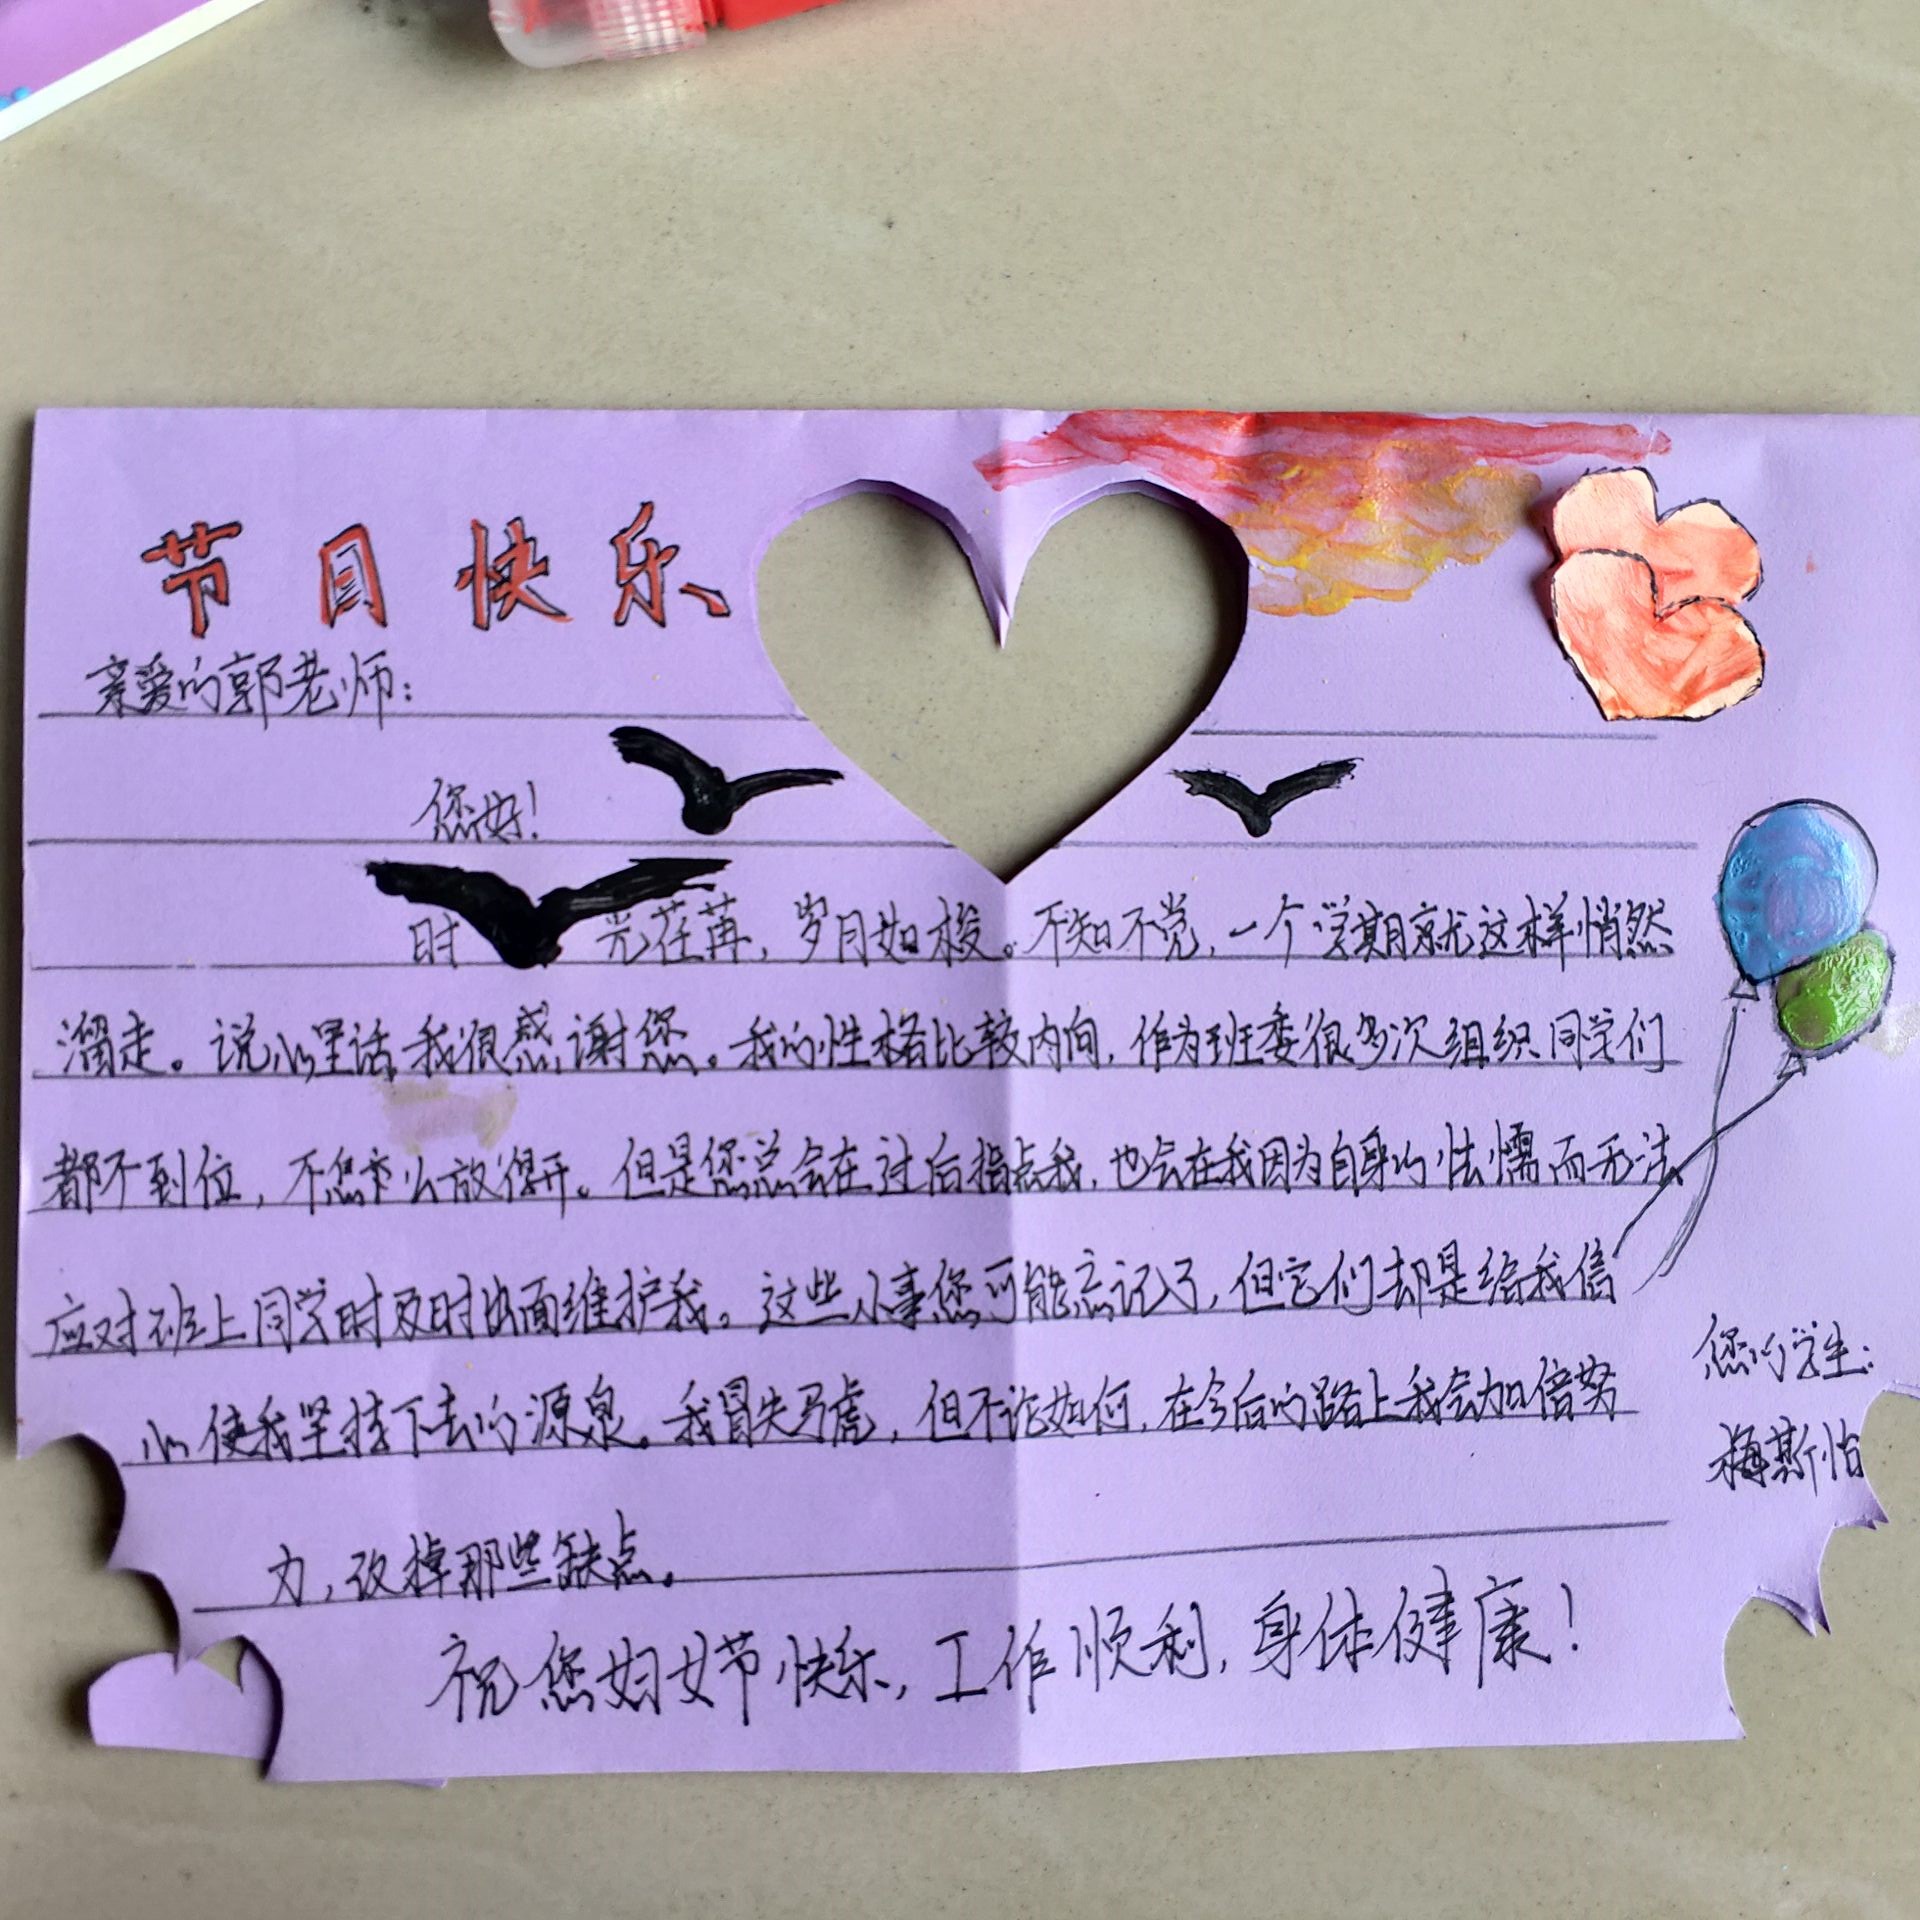 节日快乐
亲爱的郭老师：
您好！
时光荏苒，岁月如梭。不知不觉，一个学期就这样悄然
溜走。说心里话，我很感谢您。我的性格比较内向，作为班委很多次组织同学们
都不到位，不怎么放得开。但是您总会在过后指点我，也会在我因为自身的怯懦而无法
应对班上同学时及时出面维护我。这些小事您可能忘记了，但它们却是给我信
心使我坚持下去的源泉。我冒失马虎，但不论如何，在今后的路上我会加倍努
力，改掉那些缺点。
祝您妇女节快乐，工作顺利，身体健康！
您的学生：
梅斯怡